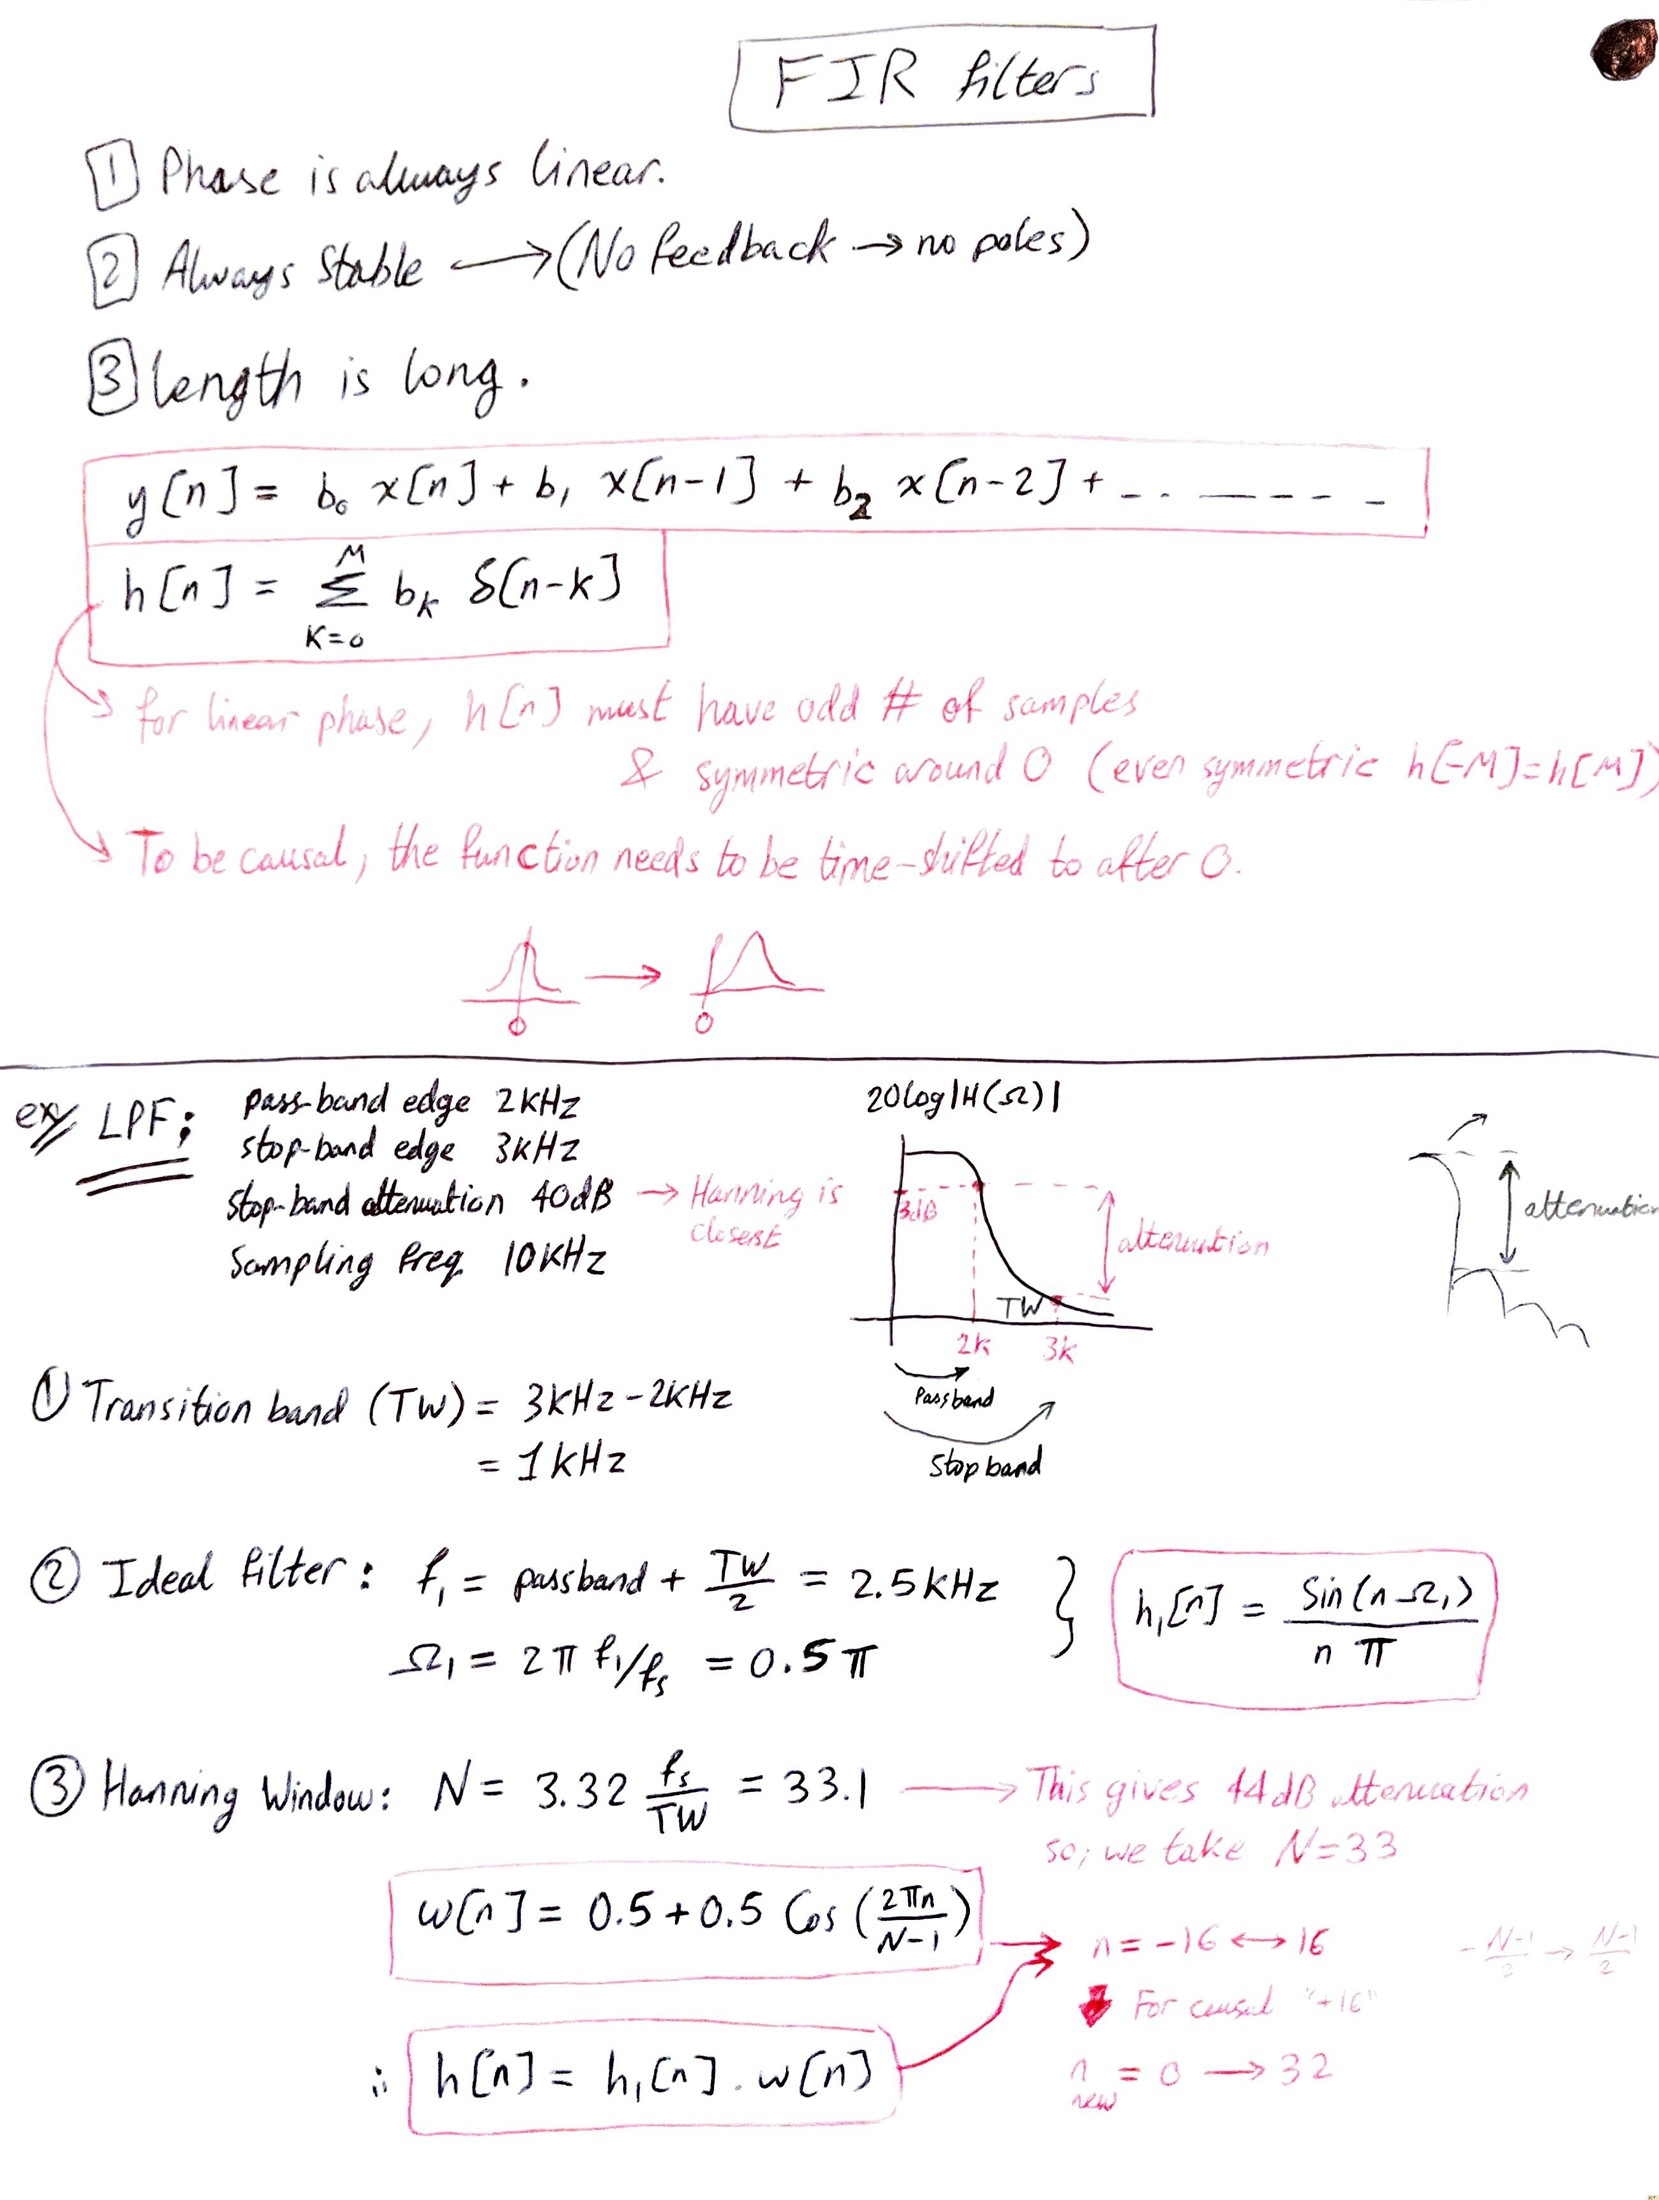 FIR filters
1 Phase is always linear.
2 Always Stable ⟶ (No feedback → no poles)
3 length is long.
y[n] = b₀ x[n] + b₁ x[n-1] + b₂ x[n-2] + - - - - - - -
h[n] = Σ_{K=0}^{M} b_K δ[n-K]
for linear phase, h[n] must have odd # of samples
& symmetric around 0 (even symmetric h[-M]=h[M])
To be causal, the function needs to be time-shifted to after 0.
0 → 0
ex LPF:
pass-band edge 2KHz
stop-band edge 3KHz
stop-band attenuation 40dB → Hanning is closest
Sampling freq. 10KHz
20log|H(Ω)|
3dB
attenuation
TW
2k 3k
Passband
Stopband
attenuation
① Transition band (TW) = 3KHz-2KHz
= 1KHz
② Ideal filter: f₁ = passband + TW/2 = 2.5KHz
Ω₁ = 2π f₁/fs = 0.5π
} h₁[n] = Sin(nΩ₁)/nπ
③ Hanning Window: N = 3.32 fs/TW = 33.1 → This gives 44dB attenuation
so; we take N=33
w[n] = 0.5+0.5 Cos(2πn/N-1)
n = -16 ↔ 16
-N-1/2 → N-1/2
For causal "+16"
∴ h[n] = h₁[n] . w[n]
n new = 0 → 32